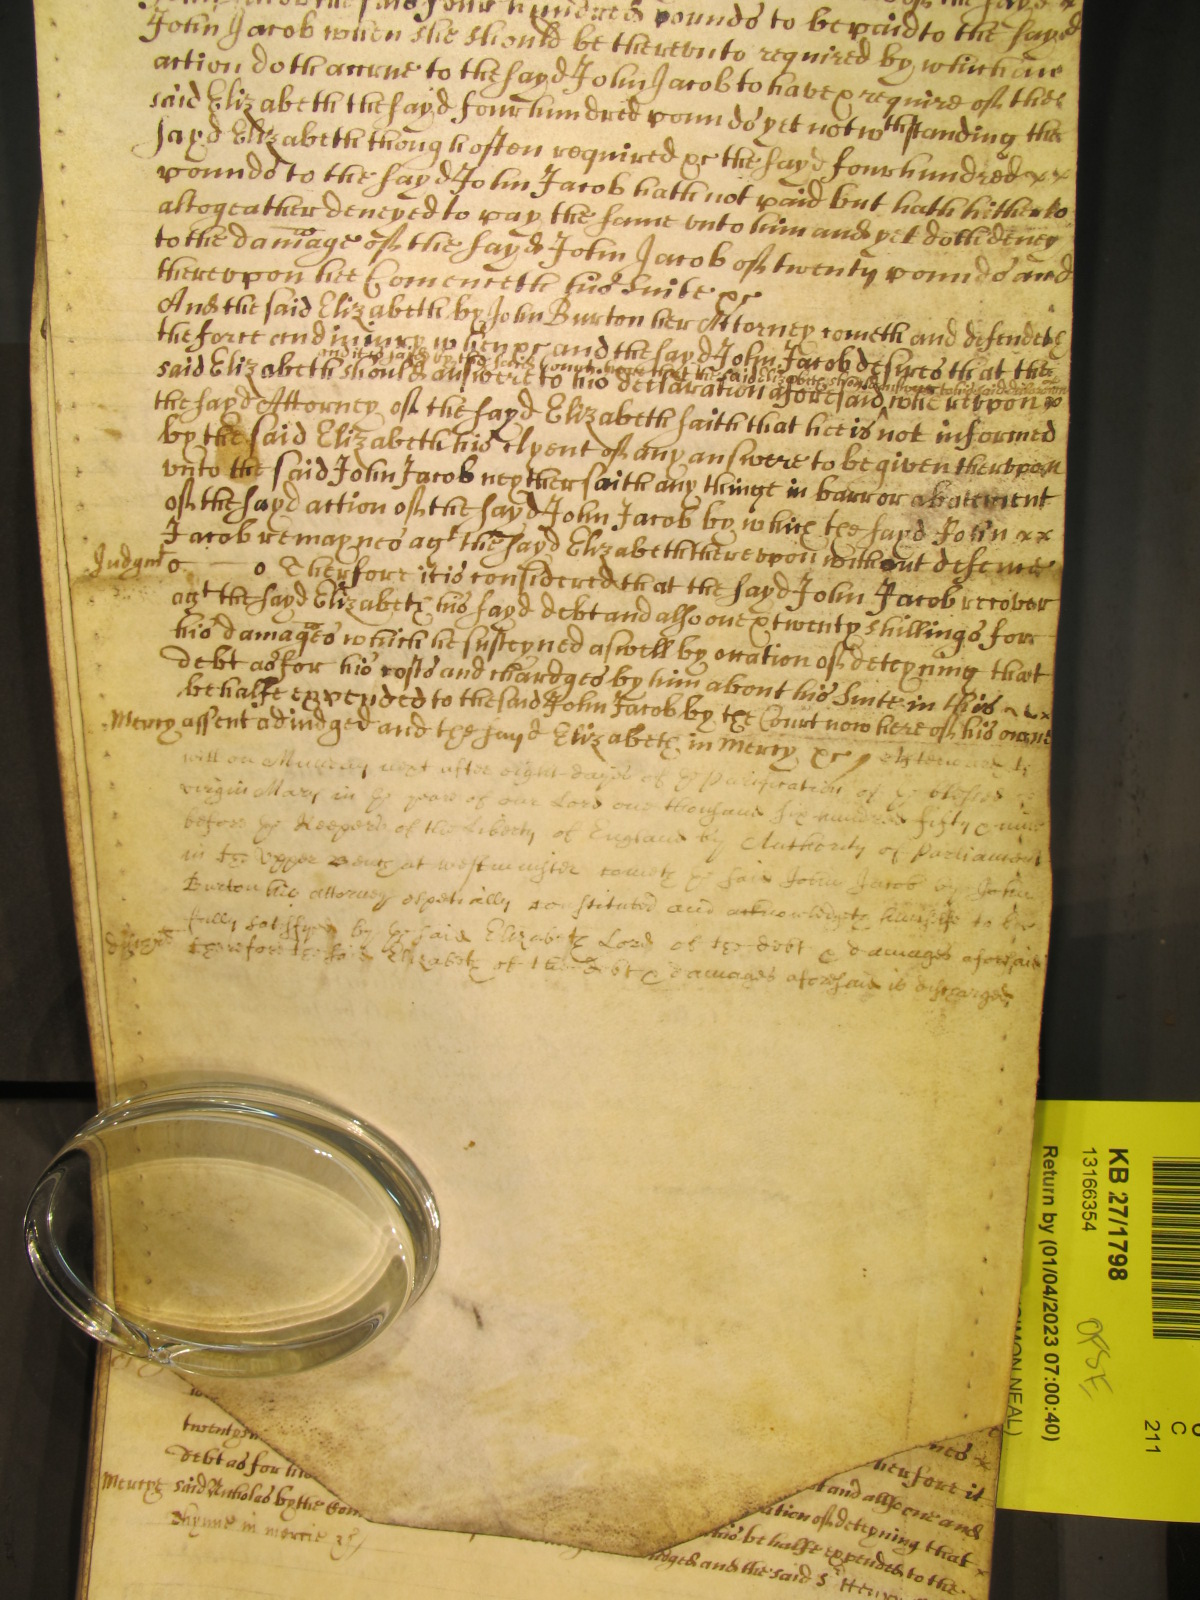 the said four hundred pounds to be paid to the sayd
John Jacob when she should be therevnto required by which an
action doth accrue to the sayd John Jacob to have & require of the
said Elizabeth the sayd four hundred pounds yet notwthstanding the
sayd Elizabeth though often required &c the sayd four hundred xx
pounds to the sayd John Jacob hath not paid but hath hitherto
altogeather denyed to pay the same vnto him and yet doth deney
to the damage of the sayd John Jacob of twenty pounds and
therevpon hee Comenceth his suite &c
And the said Elizabeth by John Burton her Attorney cometh and defendeth
the force and iniury when &c and the sayd John Jacob desires that the
and it is said by the Court here that the said Elizabeth should answere to his said declaration
said Elizabeth should answere to his declaration aforesaid wherevpon
the sayd Attorney of the sayd Elizabeth saith that hee is not informed
by the said Elizabeth his clyent of any answere to be given thervpon
vnto the said John Jacob neyther saith any thinge in barr or abatement
of the sayd action of the sayd John Jacob by which the sayd John xx
Jacob remaynes agt the sayd Elizabeth therevpon without defence
Judgmt o o Therfore it is considered that the sayd John Jacob recover
agt the sayd Elizabeth his sayd debt and also one & twenty shillings for
his damages which he susteyned aswell by occation of deteyning that
debt as for his costs and chardges by him about his suite in this
behalfe expended to the said John Jacob by the Court now here of his owne
Mercy assent adiudged and the sayd Elizabeth in Mercy &c / Afterwards
on Munday next after eight dayes of ye Purification of ye blessed
virgin Mary in ye yeare of our Lord one thousand six hundred fifty & nine
before ye Keepers of the Liberty of England by Authority of Parliament
in the vpper bench at westminster cometh ye said John Jacob by John
Burton his attorney espetially constituted and acknowledgeth himselfe to be
fully satisfyed by ye said Elizabeth Lord of the debt & damages aforesaid
therefore the said Elizabeth of the debt & damages aforesaid is discharged
KB 27/1798
13166354
Return by (01/04/2023 07:00:40)
SIMON NEAL)
211
C
twenty
debt as for his
Mercye said Nicholas by the Court
Thynne in mercie &c
herfore it
and allsoe one and
occation of deteyning that
his behalfe expended to the
adiudged and the said Sr Henry